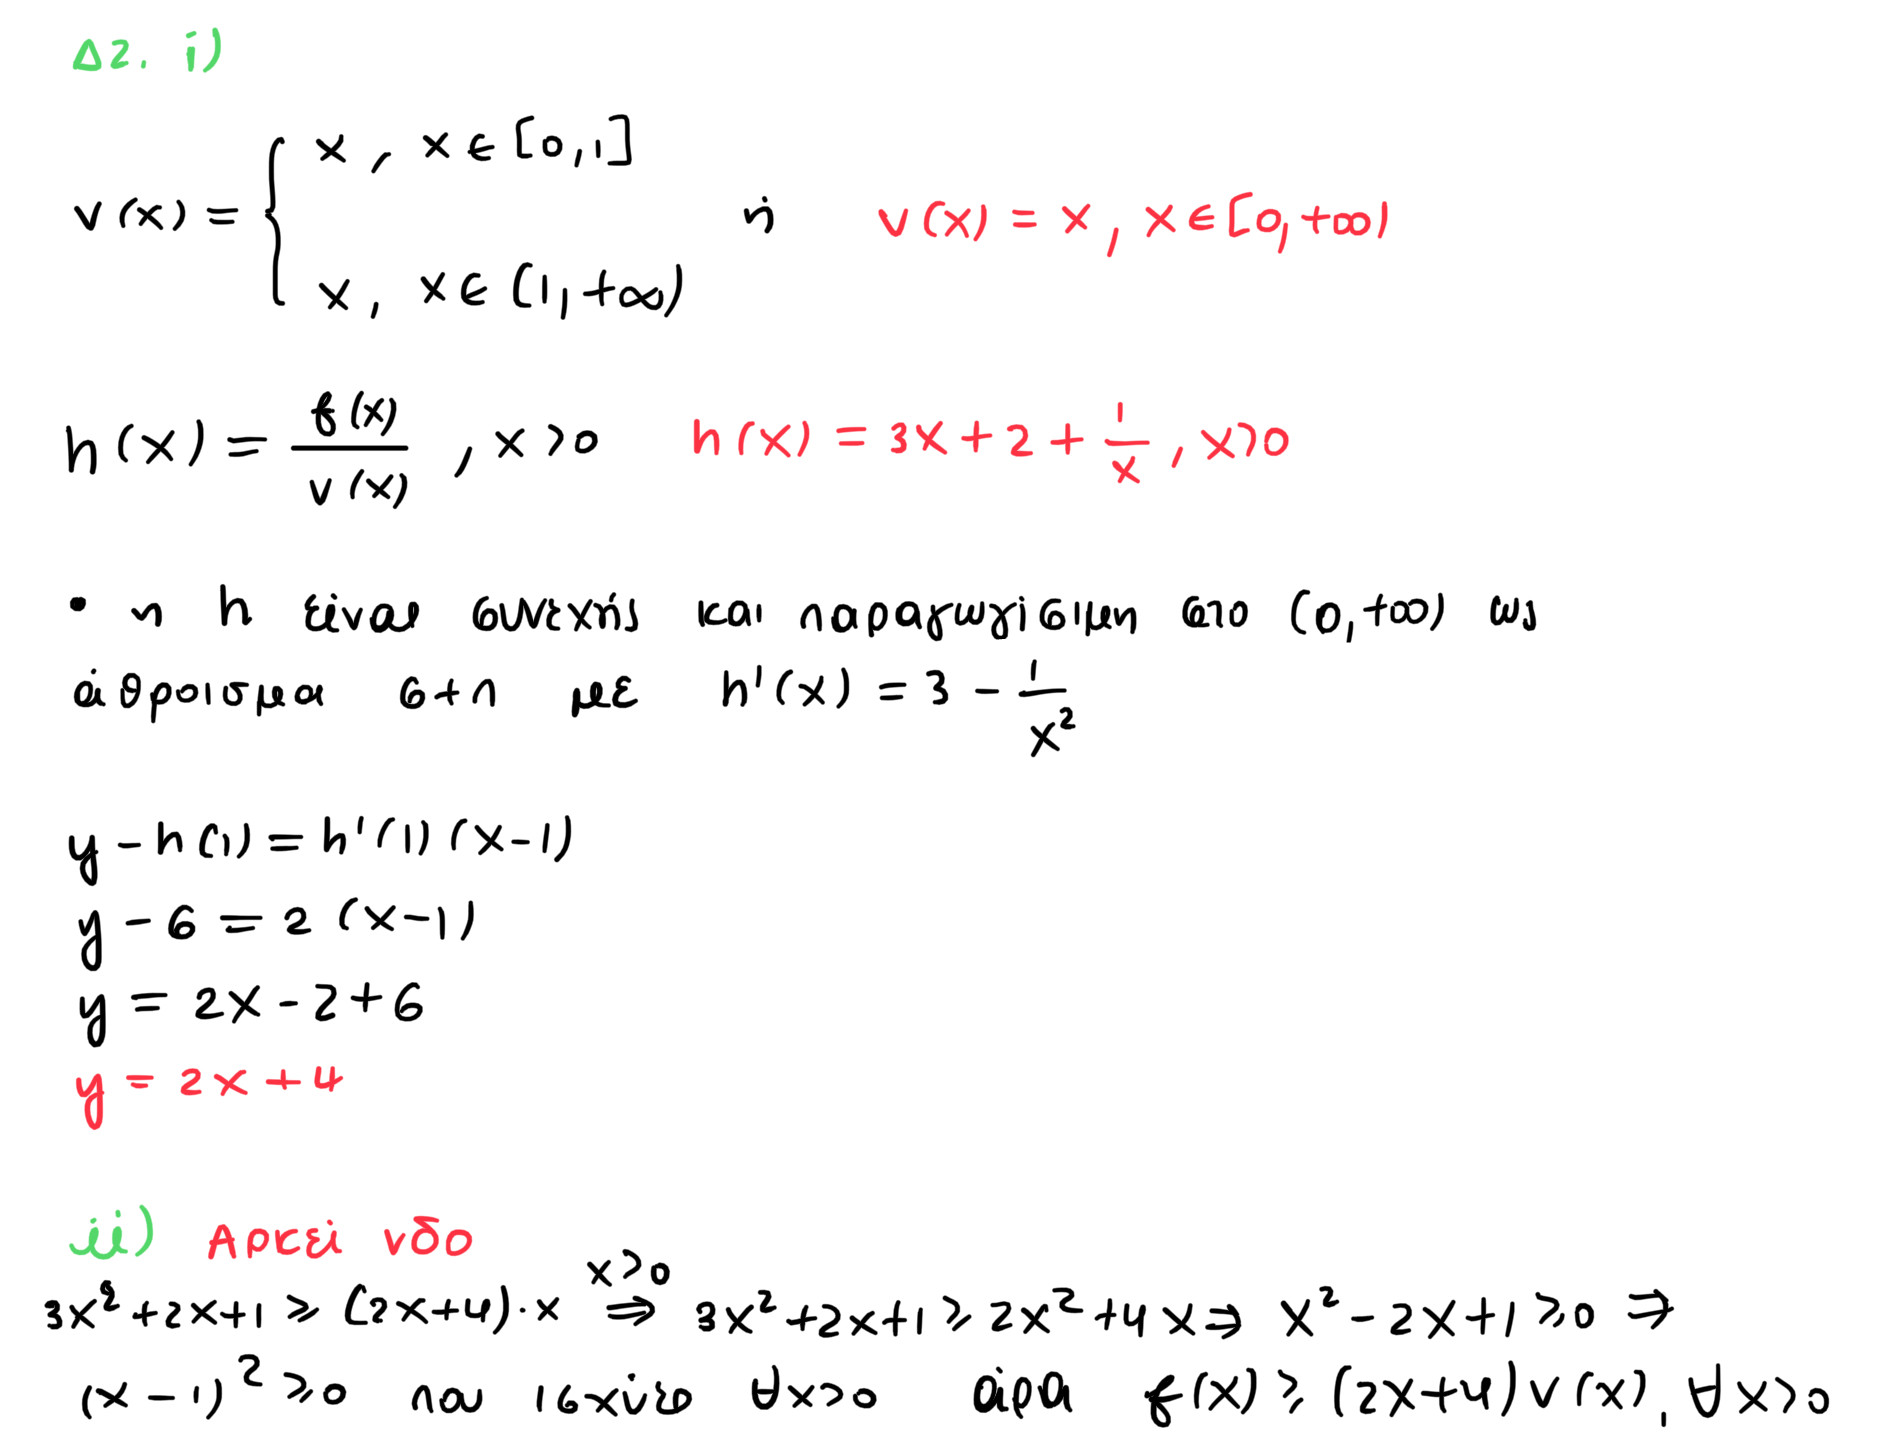 Δ2. i)
v(x) = { x, x ∈ [0,1]
x, x ∈ (1,+∞)
ή v(x) = x, x ∈ [0,+∞)
h(x) = f(x)/v(x), x>0 h(x) = 3x + 2 + 1/x, x>0
• η h είναι συνεχής και παραγωγίσιμη στο (0,+∞) ως
άθροισμα σ+π με h'(x) = 3 - 1/x²
y - h(1) = h'(1) (x-1)
y - 6 = 2 (x-1)
y = 2x - 2 + 6
y = 2x + 4
ii) Αρκεί νδο
3x² + 2x + 1 ≥ (2x+4)·x ⇒ (x>0) 3x² + 2x + 1 ≥ 2x² + 4x ⇒ x² - 2x + 1 ≥ 0 ⇒
(x - 1)² ≥ 0 που ισχύει ∀x>0 άρα f(x) ≥ (2x+4) v(x), ∀x>0